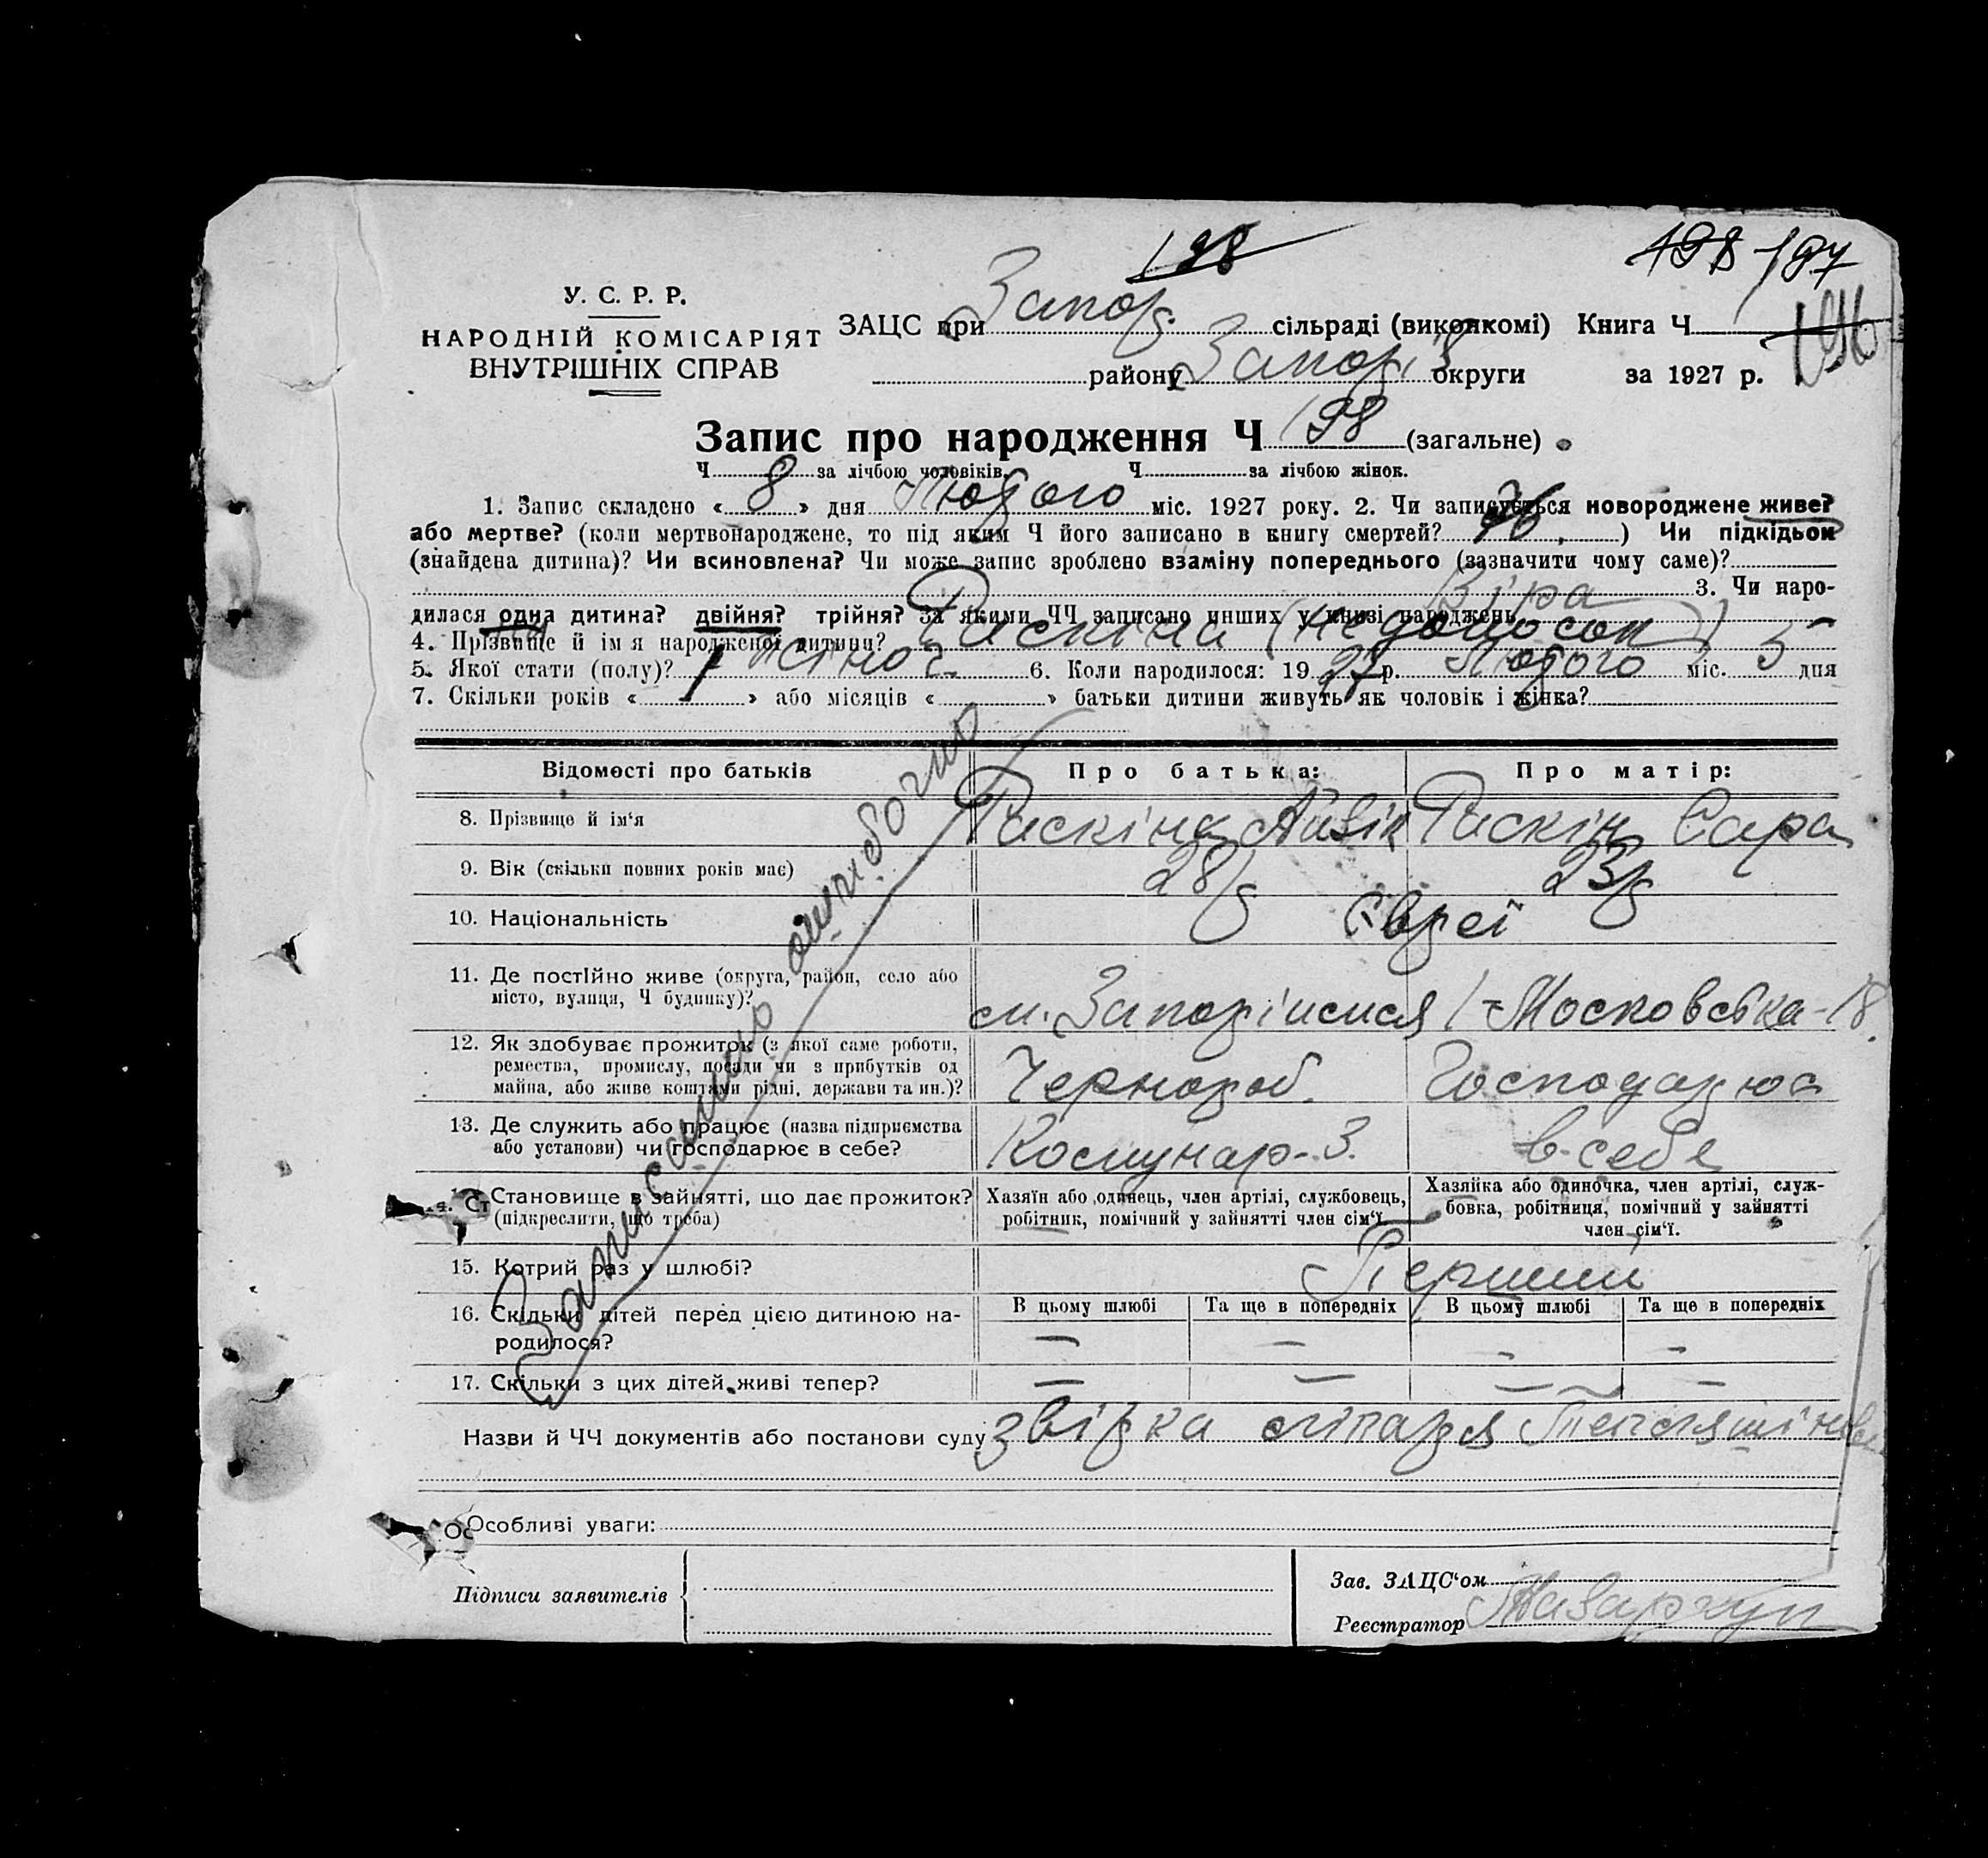 198
198 197
196
У. С. Р. Р.
НАРОДНІЙ КОМІСАРІЯТ
ВНУТРІШНІХ СПРАВ
ЗАЦС при Запор. сільраді (виконкомі) Книга Ч
району Запорі округи за 1927 р.
Запис про народження Ч 198 (загальне)
Ч за лічбою чоловіків Ч за лічбою жінок.
1. Запис складено « 8 » дня Лютого міс. 1927 року. 2. Чи записується новороджене живе?
або мертве? (коли мертвонароджене, то під яким Ч його записано в книгу смертей? 76. ) Чи підкідьок
(знайдена дитина)? Чи всиновлена? Чи може запис зроблено взаміну попереднього (зазначити чому саме)?
3. Чи наро-
дилася одна дитина? двійня? трійня? За якими ЧЧ записано инших у книзі народжень
Віра
4. Прізвище й ім'я народженої дитини? Раскіна (недоносок)
5. Якої стати (полу)? жіноч. 6. Коли народилося: 1927 р. Лютого міс. 5 дня
7. Скільки років « 1 » або місяців « » батьки дитини живуть як чоловік і жінка?
Записано ошибочно
Відомості про батьків Про батька: Про матір:
8. Прізвище й ім'я Раскіна Раскін Сара
9. Вік (скільки повних років має) 28 р 23 р
10. Національність Євреї
11. Де постійно живе (округа, район, село або
місто, вулиця, Ч будинку)? м. Запоріжжя Московська-18
12. Як здобуває прожиток (з якої саме роботи,
ремества, промислу, посади чи з прибутків од
майна, або живе коштами рідні, держави та ин.)? Чернороб. Господарює
13. Де служить або працює (назва підприємства
або установи) чи господарює в себе? Комунар-З. в себе
14. Становище в зайнятті, що дає прожиток?
(підкреслити, що треба)
Хазяїн або одинець, член артілі, службовець,
робітник, помічний у зайнятті член сім'ї.
Хазяйка або одиночка, член артілі, служ-
бовка, робітниця, помічний у зайнятті
член сім'ї.
15. Котрий раз у шлюбі? Перший
16. Скільки дітей перед цією дитиною на-
родилося?
В цьому шлюбі Та ще в попередніх В цьому шлюбі Та ще в попередніх
— — — —
17. Скільки з цих дітей живі тепер? — — — —
Назви й ЧЧ документів або постанови суду звірка
Особливі уваги:
Підписи заявителів
Зав. ЗАЦС'ом
Реєстратор